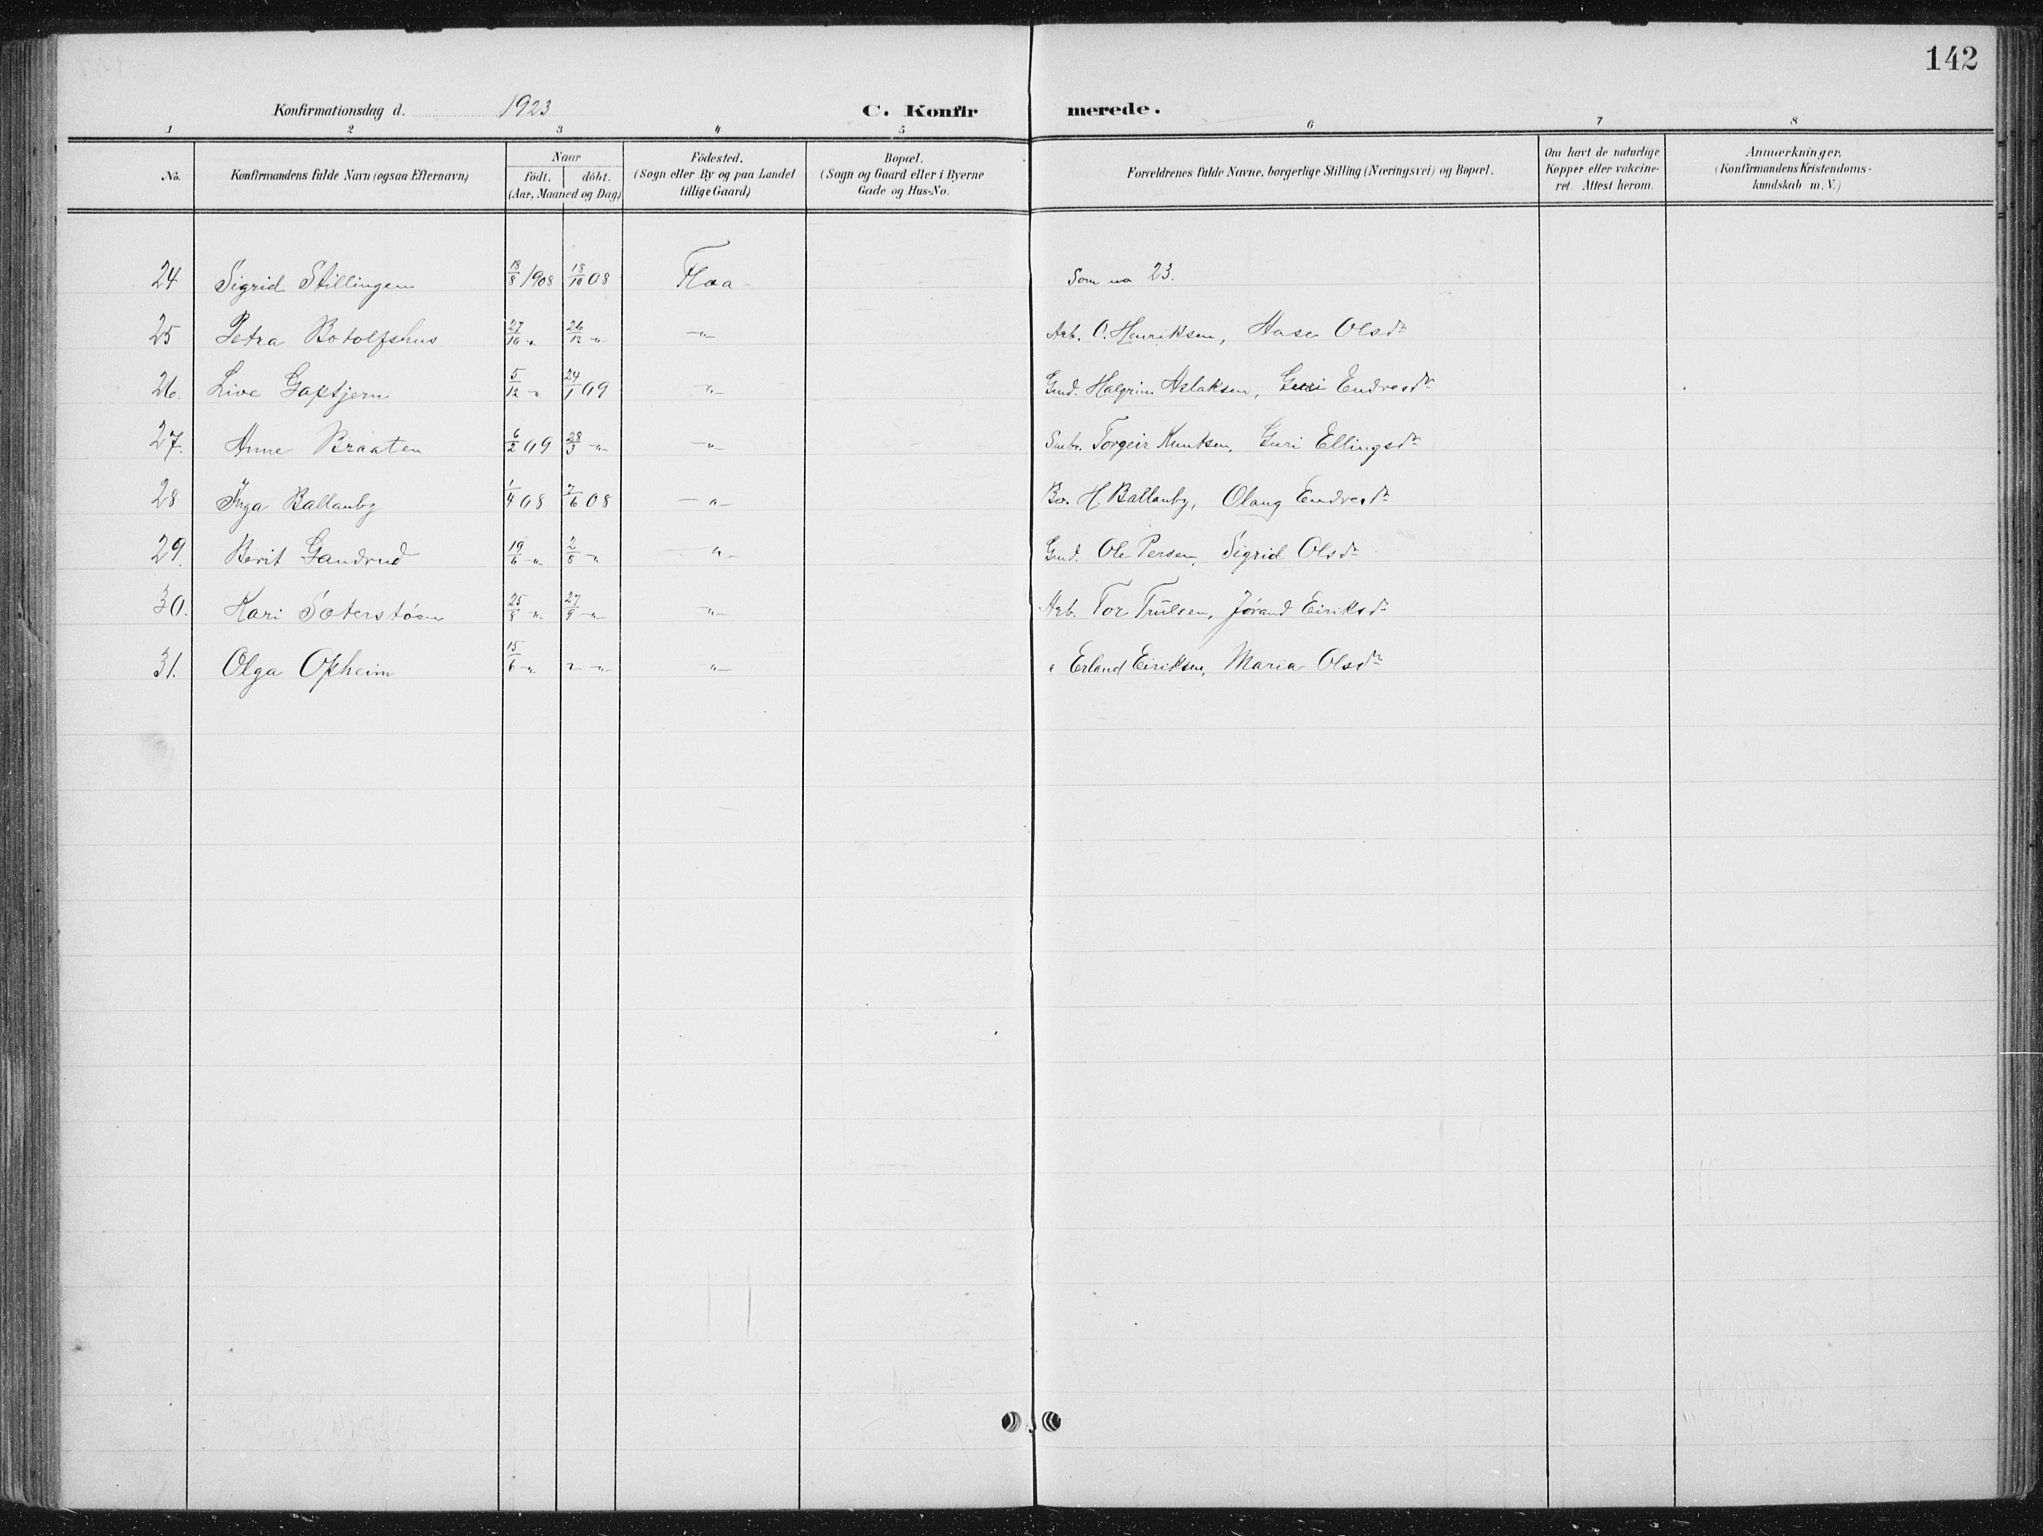 142
Konfirmationsdag d. 1923 C. Konfir merede.
1 2 3 4 5 6 7 8
No. Konfirmandens fulde Navn (ogsaa Efternavn) Naar födt. döbt. (Aar, Maaned og Dag) Födested. (Sogn eller By og paa Landet tillige Gaard) Bopæl. (Sogn og Gaard eller i Byerne Gade og Hus-No. Forældrenes fulde Navne, borgerlige Stilling (Næringsvei) og Bopæl. Om havt de naturlige Kopper eller vakcineret. Attest herom. Anmærkninger, (Konfirmandens Kristendomskundskab m. V.)
24 Sigrid Stillingen 18/8 1908 18/10 08 Flaa Som no 23.
25 Petra Botolfshus 27/10 -"- 26/12 -"- -"- Arb. O. Henriksen, Olsdr
26. Live Gaptjern 5/12 -"- 24/1 09 -"- Gmd. Halgrim Aslaksen, Guri Endresdr
27. Anne Braaten 6/2 09 28/3 -"- -"- Smbr. Torgeir Knutsen, Guri Ellingsdr
28 Inga Ballanby 1/4 08 7/6 08 -"- H. Ballanby, Olaug Endresdr
29. Berit Gandrud 19/6 -"- 2/8 -"- -"- Gmd. Ole Persen, Sigrid Olsdr
30. Kari Sæterstøen 25/8 -"- 27/9 -"- -"- Arb. Tor Trulsen, Jørand Eiriksdr
31. Olga Opheim 15/6 -"- -"- -"- " Erland Eiriksen, Maria Olsdr